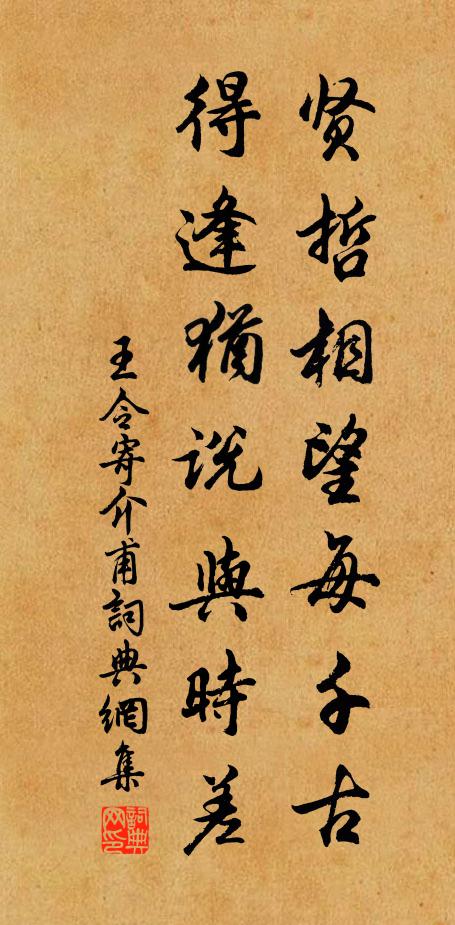 贤哲相望每千古
得逢猶说與時差
王令寄介甫詞典網集
詞典网印